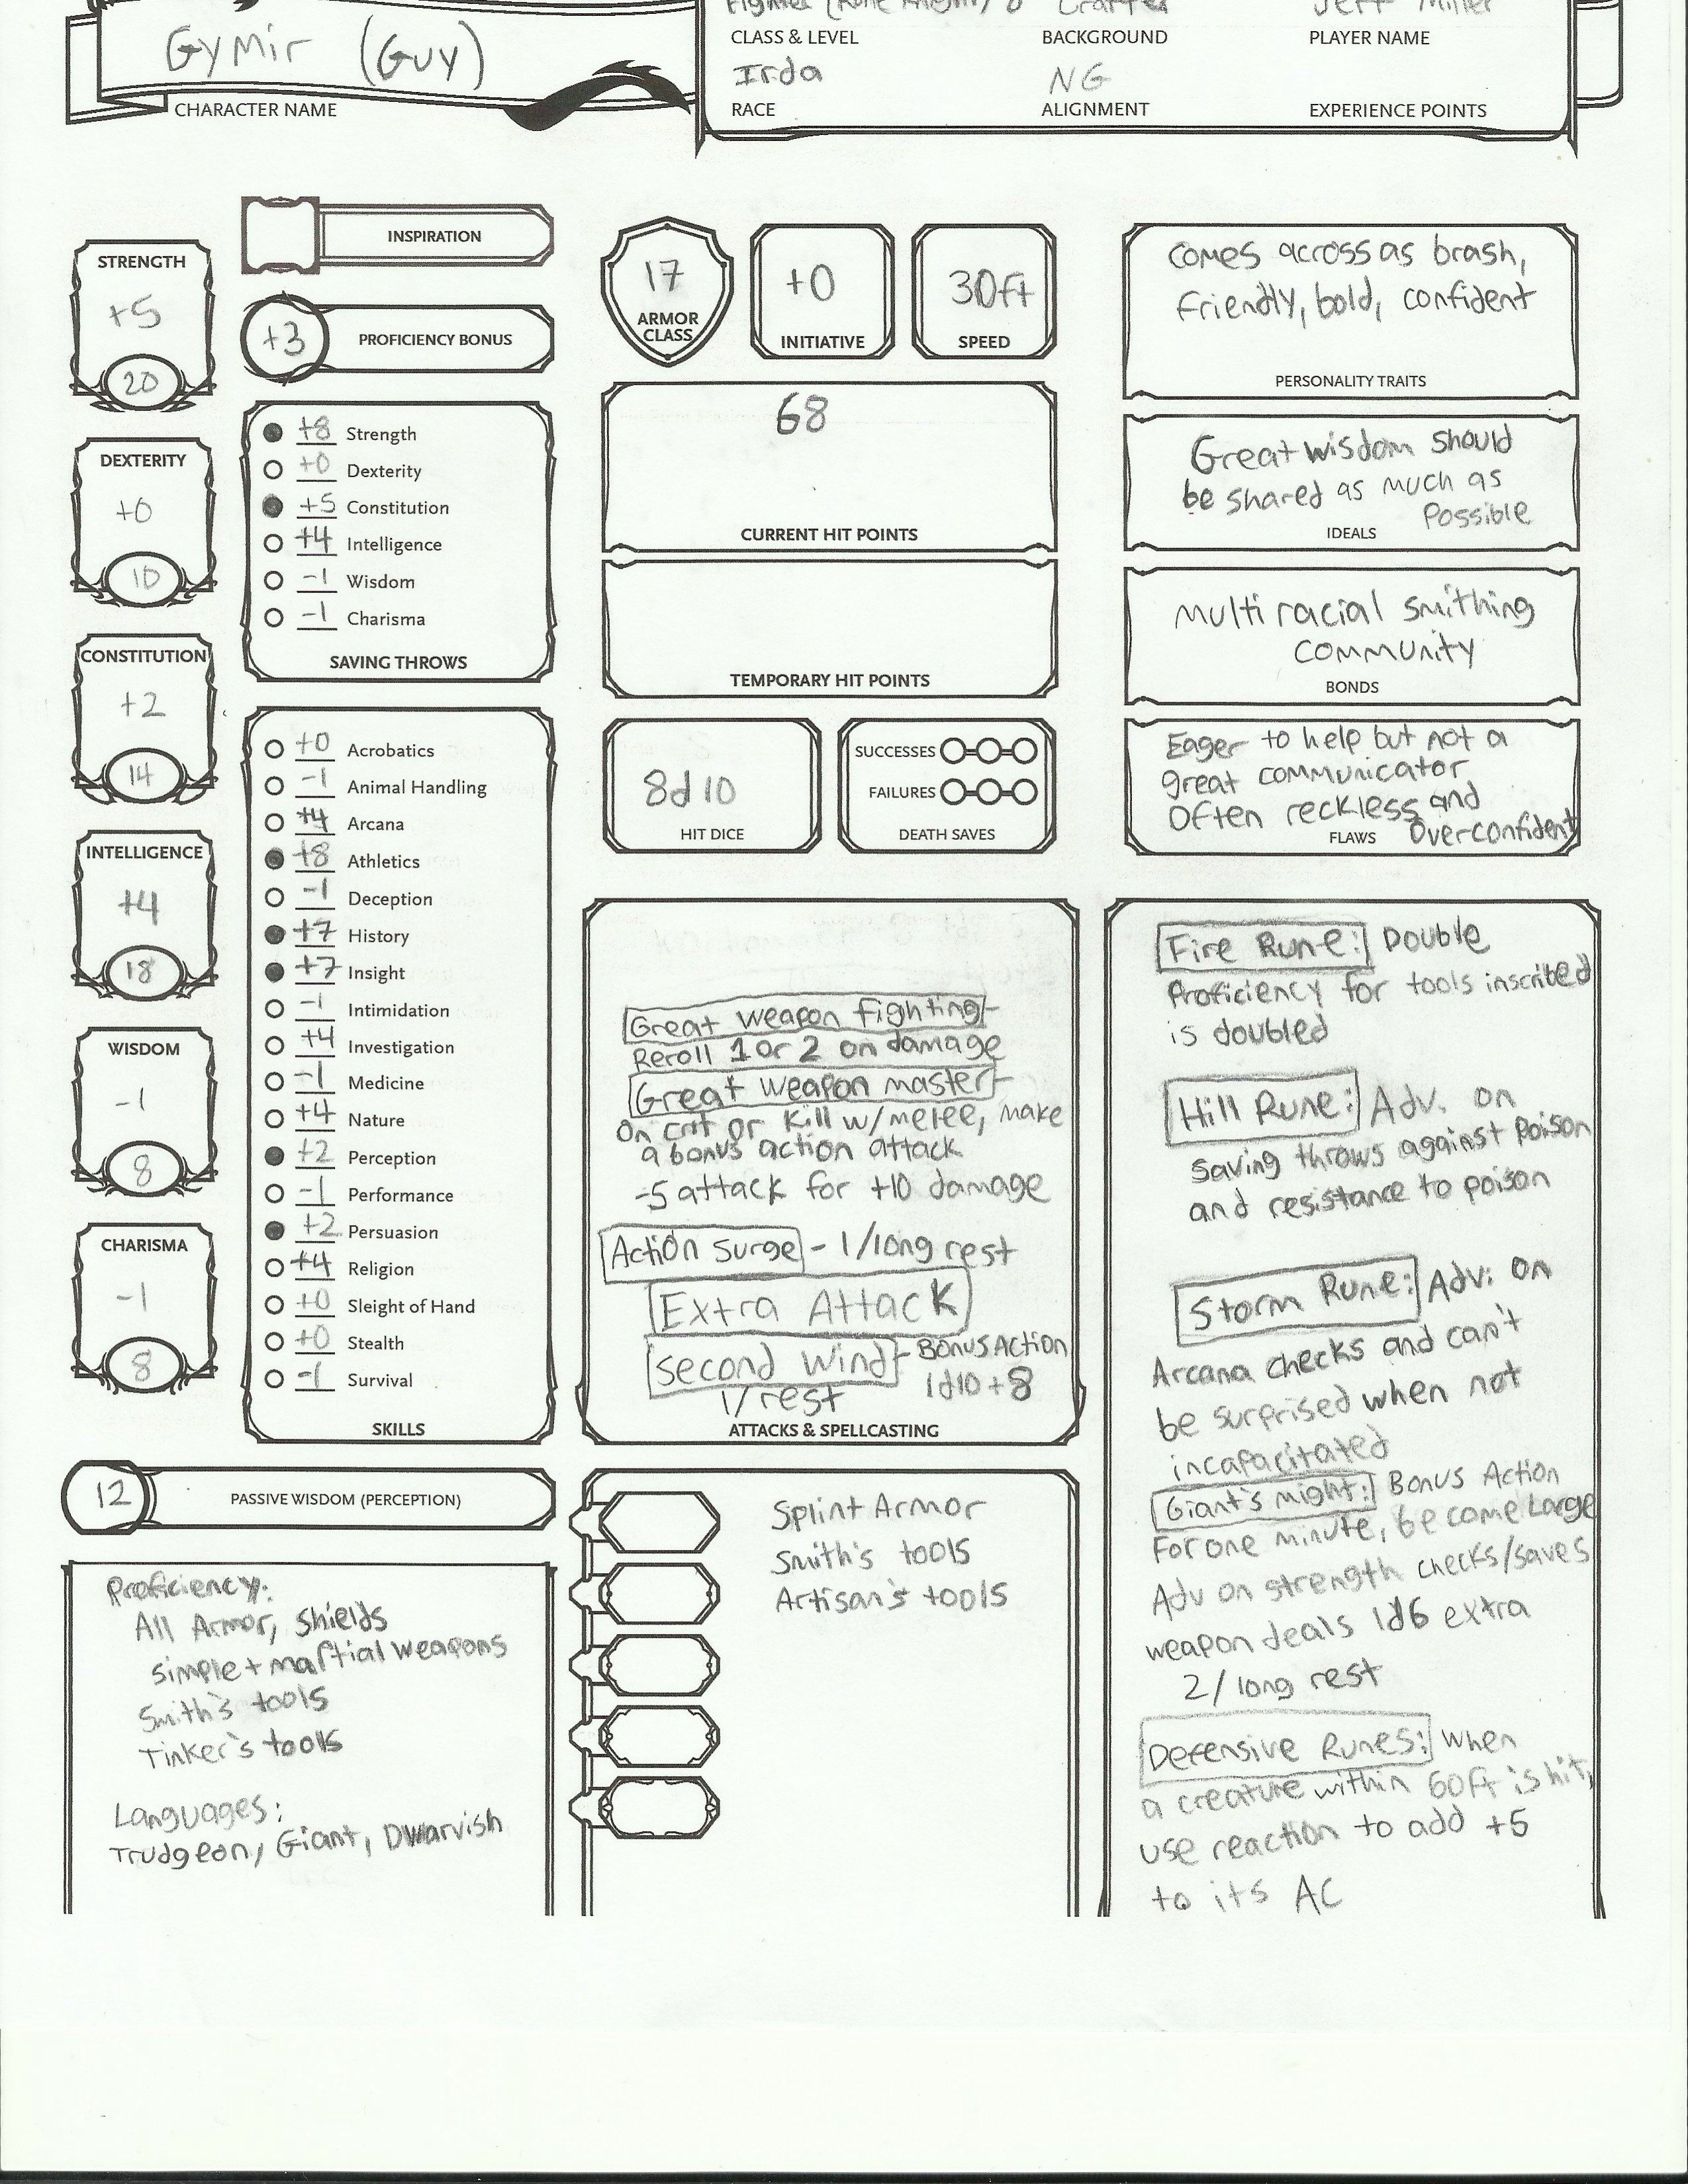 Gymir (Guy)
CHARACTER NAME
Fighter (Rune Knight) 8 Crafter Jeff Miller
CLASS & LEVEL BACKGROUND PLAYER NAME
Irda NG
RACE ALIGNMENT EXPERIENCE POINTS
STRENGTH
+5
20
DEXTERITY
+0
10
CONSTITUTION
+2
14
INTELLIGENCE
+4
18
WISDOM
-1
8
CHARISMA
-1
8
INSPIRATION
+3 PROFICIENCY BONUS
+8 Strength
+0 Dexterity
+5 Constitution
+4 Intelligence
-1 Wisdom
-1 Charisma
SAVING THROWS
+0 Acrobatics
-1 Animal Handling
+4 Arcana
+8 Athletics
-1 Deception
+7 History
+7 Insight
-1 Intimidation
+4 Investigation
-1 Medicine
+4 Nature
+2 Perception
-1 Performance
+2 Persuasion
+4 Religion
+0 Sleight of Hand
+0 Stealth
-1 Survival
SKILLS
12 PASSIVE WISDOM (PERCEPTION)
Proficiency:
All Armor, shields
simple + martial weapons
Smith's tools
Tinker's tools
Languages:
Trudgeon, Giant, Dwarvish
17
ARMOR
CLASS
+0
INITIATIVE
30ft
SPEED
68
CURRENT HIT POINTS
TEMPORARY HIT POINTS
8d10
HIT DICE
SUCCESSES
FAILURES
DEATH SAVES
Great weapon fighting-
Reroll 1 or 2 on damage
Great weapon master-
On crit or kill w/melee, make
a bonus action attack
-5 attack for +10 damage
Action Surge - 1/long rest
Extra Attack
second wind - Bonus Action
1/rest 1d10+8
ATTACKS & SPELLCASTING
Splint Armor
Smith's tools
Artisan's tools
comes across as brash,
friendly, bold, confident
PERSONALITY TRAITS
Great wisdom should
be shared as much as
possible
IDEALS
Multi racial smithing
community
BONDS
Eager to help but not a
great communicator
Often reckless and
overconfident
FLAWS
Fire Rune: Double
Proficiency for tools inscribed
is doubled
Hill Rune: Adv. on
saving throws against poison
and resistance to poison
Storm Rune: Adv. on
Arcana checks and can't
be surprised when not
incapacitated
Giant's might: Bonus Action
For one minute, become Large
Adv on strength checks/saves
weapon deals 1d6 extra
2/long rest
Defensive Runes: when
a creature within 60ft is hit,
use reaction to add +5
to its AC